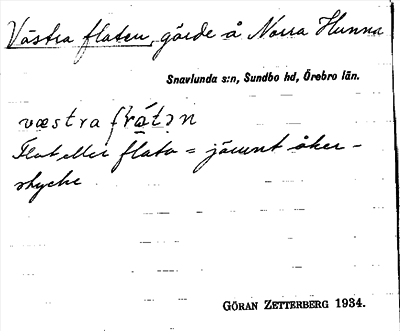 Västra flaten, gärde å Norra Hunna
Snavlunda s:n, Sundbo hd, Örebro län.
væstra
Flat eller flata = jämnt åker-
stycke
GÖRAN ZETTERBERG 1934.